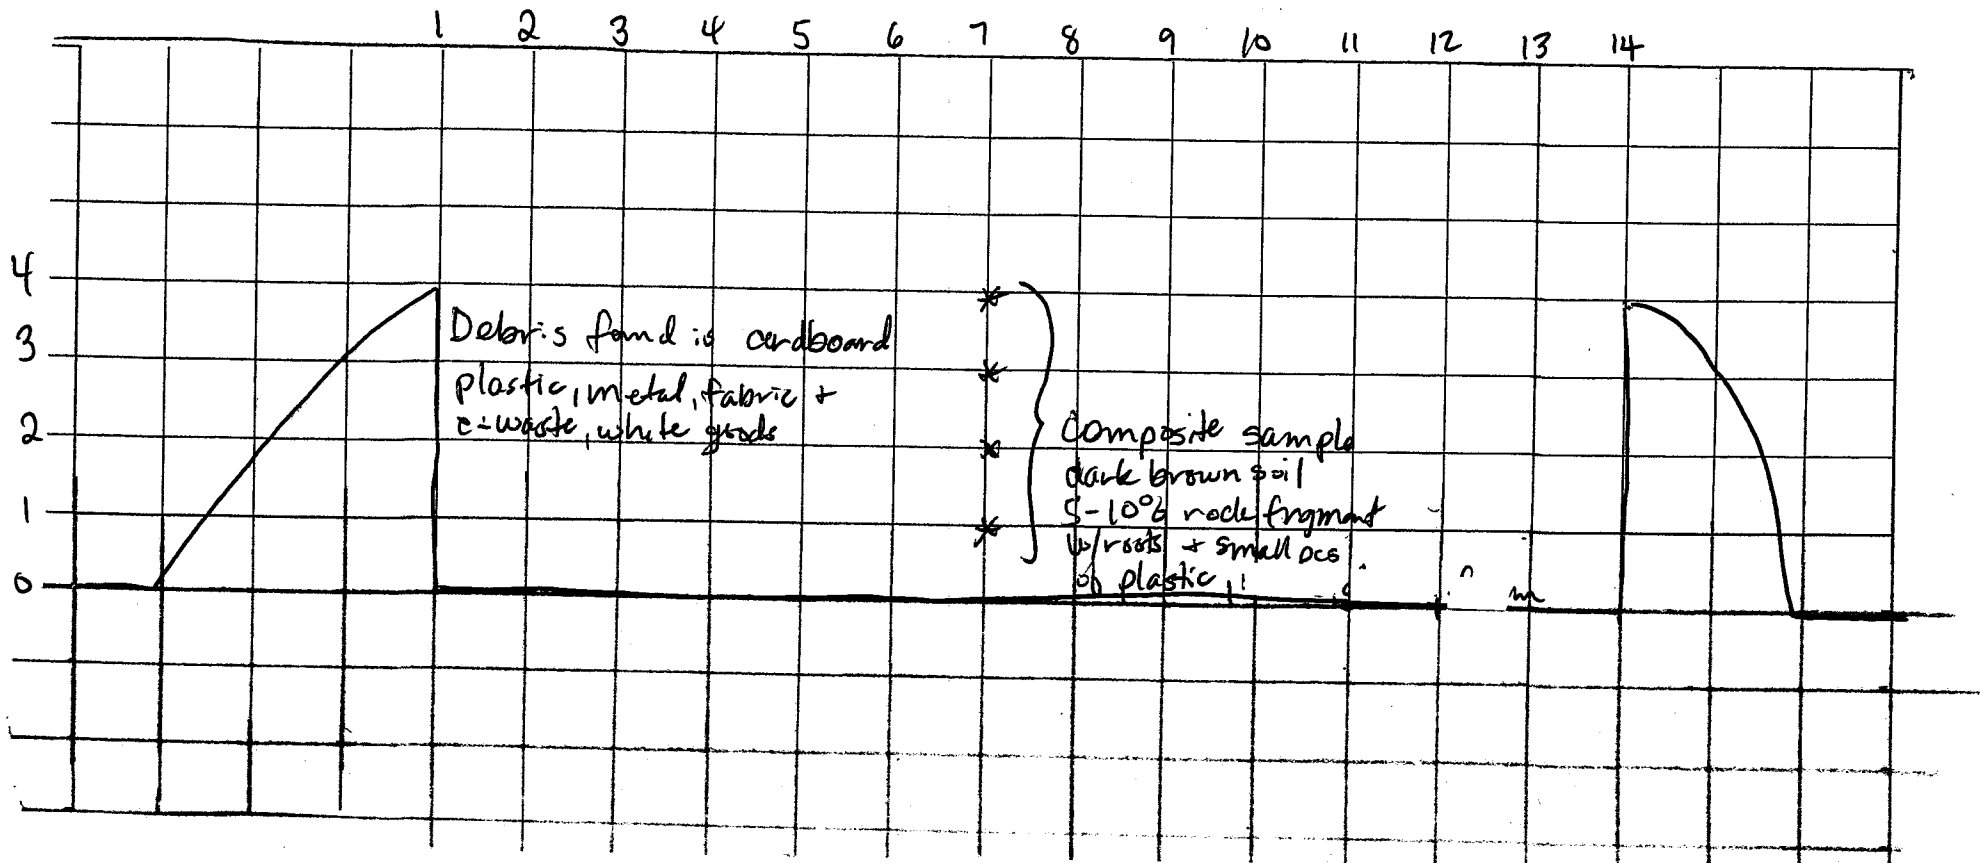 1 2 3 4 5 6 7 8 9 10 11 12 13 14
4
3
2
1
0
Debris found is cardboard
plastic, metal, fabric +
e-waste, white goods
Composite sample
dark brown soil
5-10% rock fragment
w/roots + small pcs
of plastic